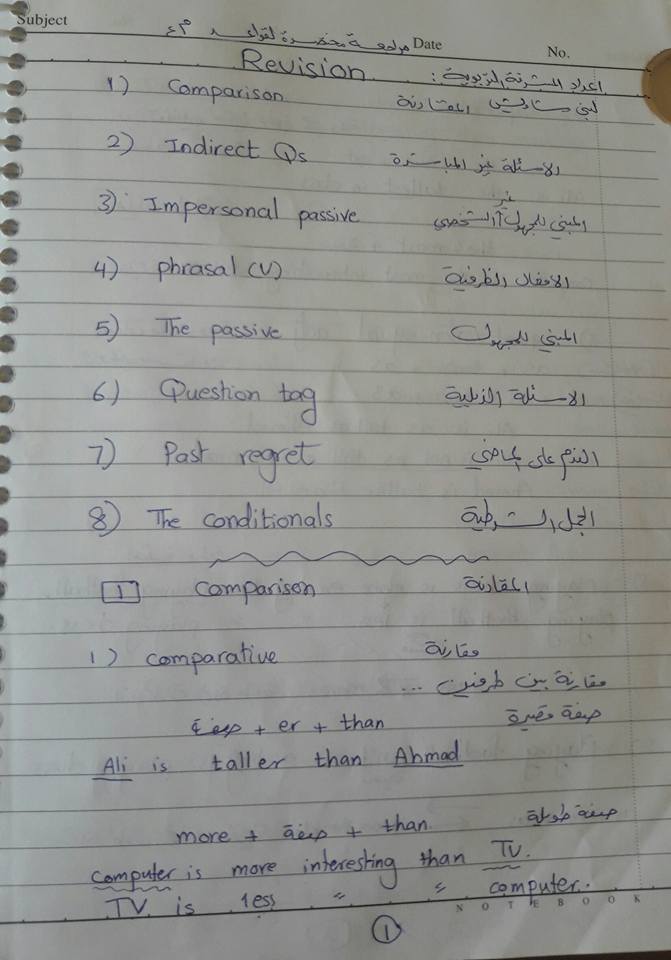 Subject مراجعة مختصرة لقواعد م٤ Date No.
Revision اعداد المشرفة التربوية :
1) Comparison المقارنة لبنى
2) Indirect Qs الاسئلة غير المباشرة
3) Impersonal passive المبني للمجهول غير الشخصي
4) phrasal (V) الافعال الظرفية
5) The passive المبني للمجهول
6) Question tag الاسئلة الذيلية
7) Past regret الندم على الماضي
8) The conditionals الجمل الشرطية
1 comparison المقارنة
1) comparative مقارنة
مقارنة بين طرفين ...
صفة + er + than صفة قصيرة
Ali is taller than Ahmad
more + صفة + than صفة طويلة
computer is more interesting than TV.
TV is less " " computer.
NOTEBOOK
1